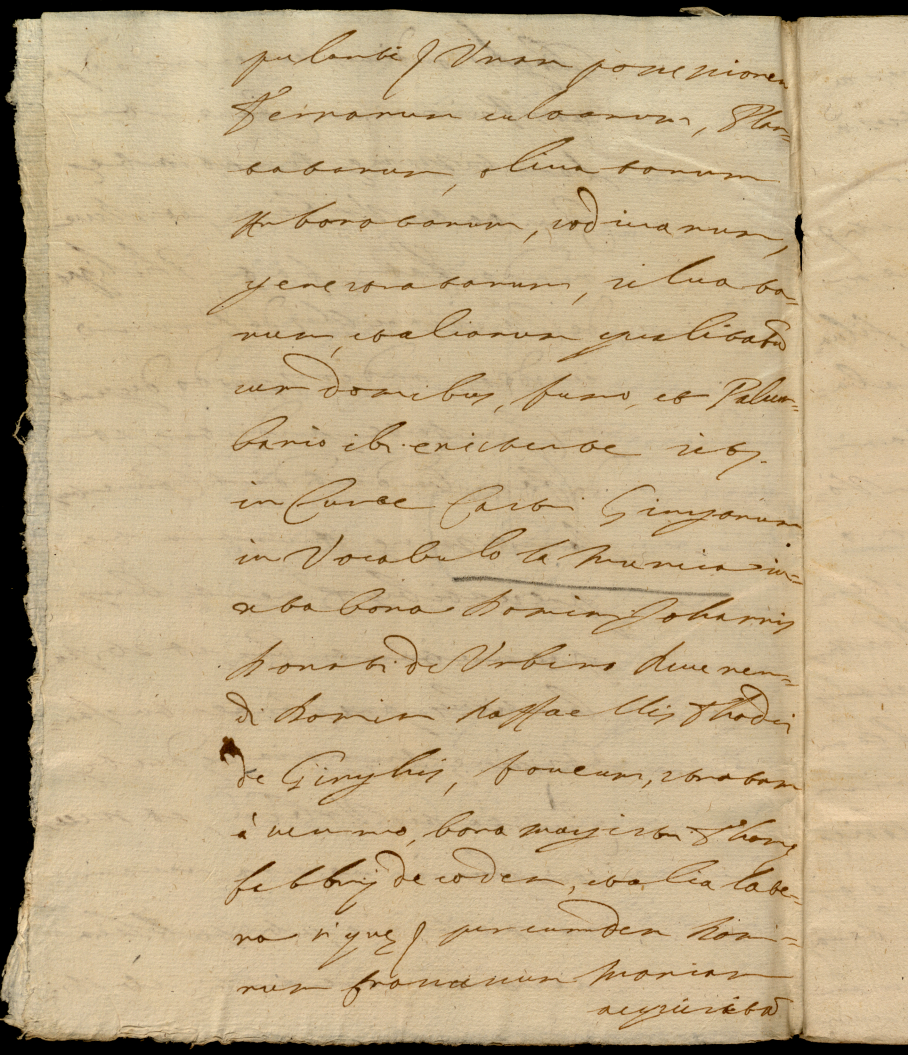 pulanti Unam possessionem
Terrarum cultarum, Plan=
tatarum, olivatarum
Arboratarum, sodivarum,
genestratarum, silvata=
rum, et aliarum qualitatū
cum domibus, furno, et Palum=
bario ibi existente sit.
in Curte Castri Girigarum
in Vocabulo la Murcia iu=
xta bona Domini Johannis
Donati de Urbino Reveren=
di Domini Raffaellis Thodei
de Girighis, foveum, stratam
à summo, bona magistri Thomę
fabbrij de eodem, et alia late=
ra si quę per eumdem Domi=
num Franciscum Mariam
acquisitā